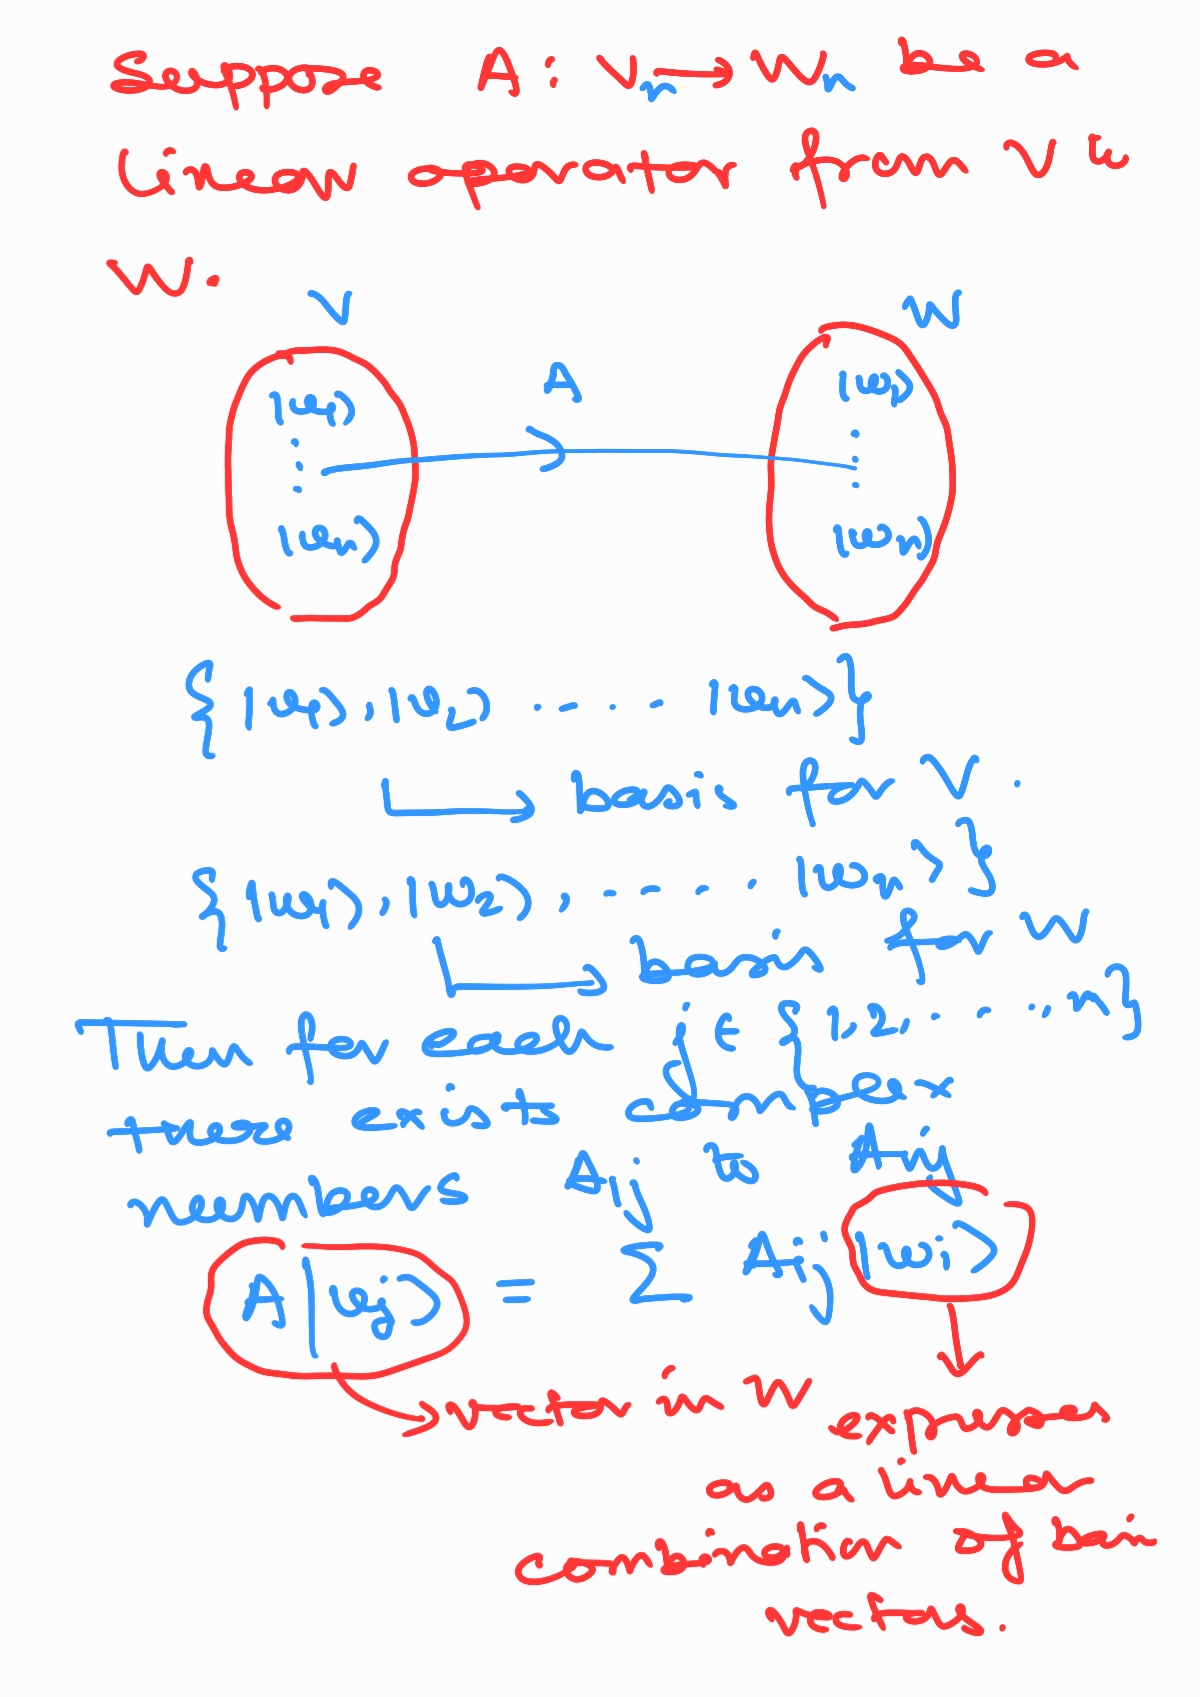 Suppose A : Vn → Wn be a
linear operator from V to
W.
V W
A
|v1⟩ |w1⟩
⋮ ⋮
|vn⟩ |wn⟩
{ |v1⟩, |v2⟩ ..... |vn⟩ }
↳ basis for V.
{ |w1⟩, |w2⟩, ..... |wn⟩ }
↳ basis for W
Then for each j ∈ {1, 2, ....., n}
there exists complex
numbers A1j to Anj
A|vj⟩ = Σ Aij |wi⟩
→ vector in W
↓
express
as a linear
combination of basis
vectors.